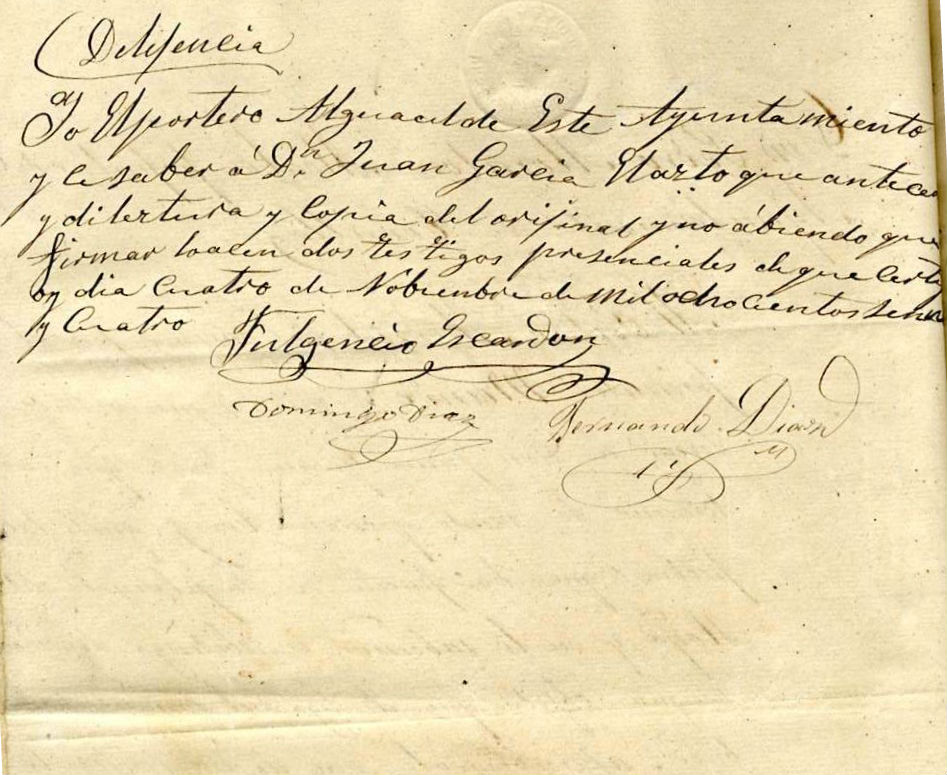 Dilijencia
Yo El portero Alguacil de Este Ayunta miento
y le saber á Dn. Juan Garcia El arto que antece
y di lextura y Copia del orijinal y no ábiendo que
firmar hacen dos testigos presenciales de que Certi
oy dia Cuatro de Nobiembre de mil ochocientos sesen
y Cuatro
Fulgencio Escandon
Domingo Diaz
Fernando Diaz